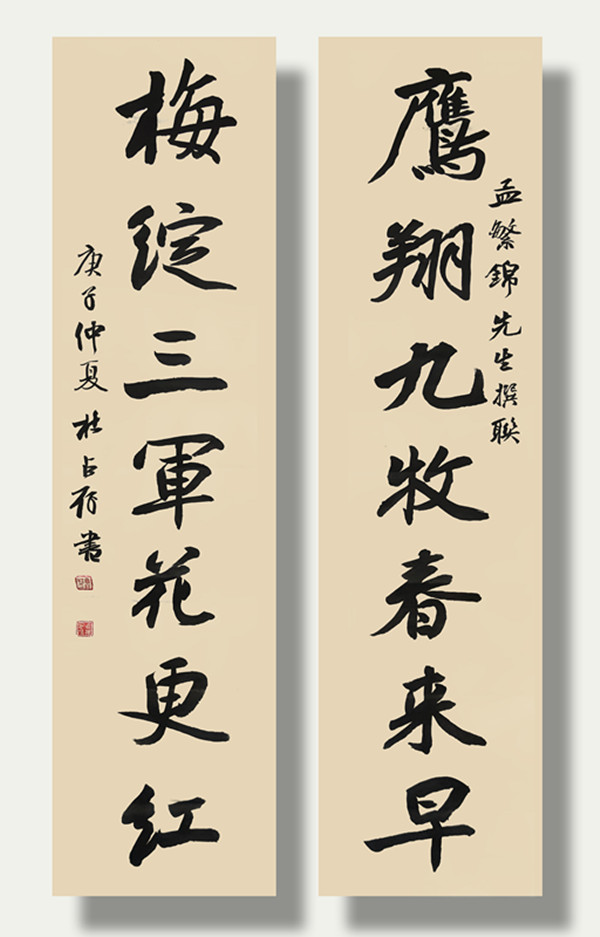 鷹翔九牧春来早
孟繁錦先生撰联
梅绽三軍花更红
庚子仲夏杜占存書